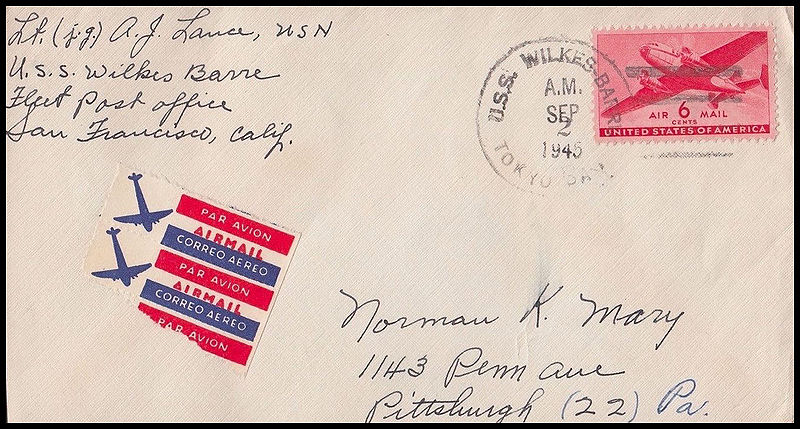 Lt. (j.g.) A. J. Lance, USN
U.S.S. Wilkes Barre
Fleet Post Office
San Francisco, Calif.
U.S.S. WILKES-BARRE
A.M.
SEP
2
1945
TOKYO BAY
AIR 6 MAIL
CENTS
UNITED STATES OF AMERICA
PAR AVION
AIRMAIL
CORREO AEREO
PAR AVION
AIRMAIL
CORREO AEREO
PAR AVION
Norman K. Mary
1143 Penn Ave
Pittsburgh (22) Pa.